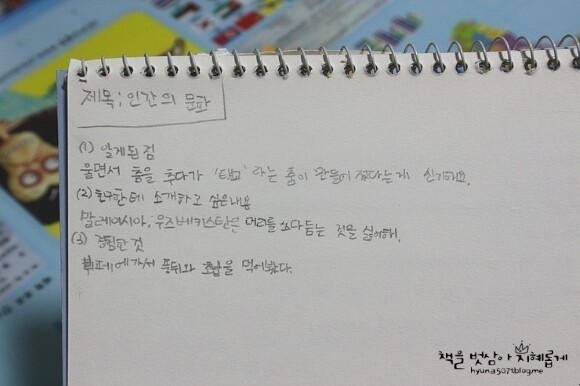 제목: 인간의 문화
(1) 알게된 점
울면서 춤을 추다가 '탱고' 라는 춤이 만들어 졌다는게 신기해요.
(2) 친구한테 소개하고 싶은내용
말레이시아, 우즈베키스탄은 머리를 쓰다듬는 것을 싫어해.
(3) 경험한 것
뷔페에가서 퐁듀와 초밥을 먹어봤다.
책을 벗삼아 지혜롭게
hyuna5071blog.me